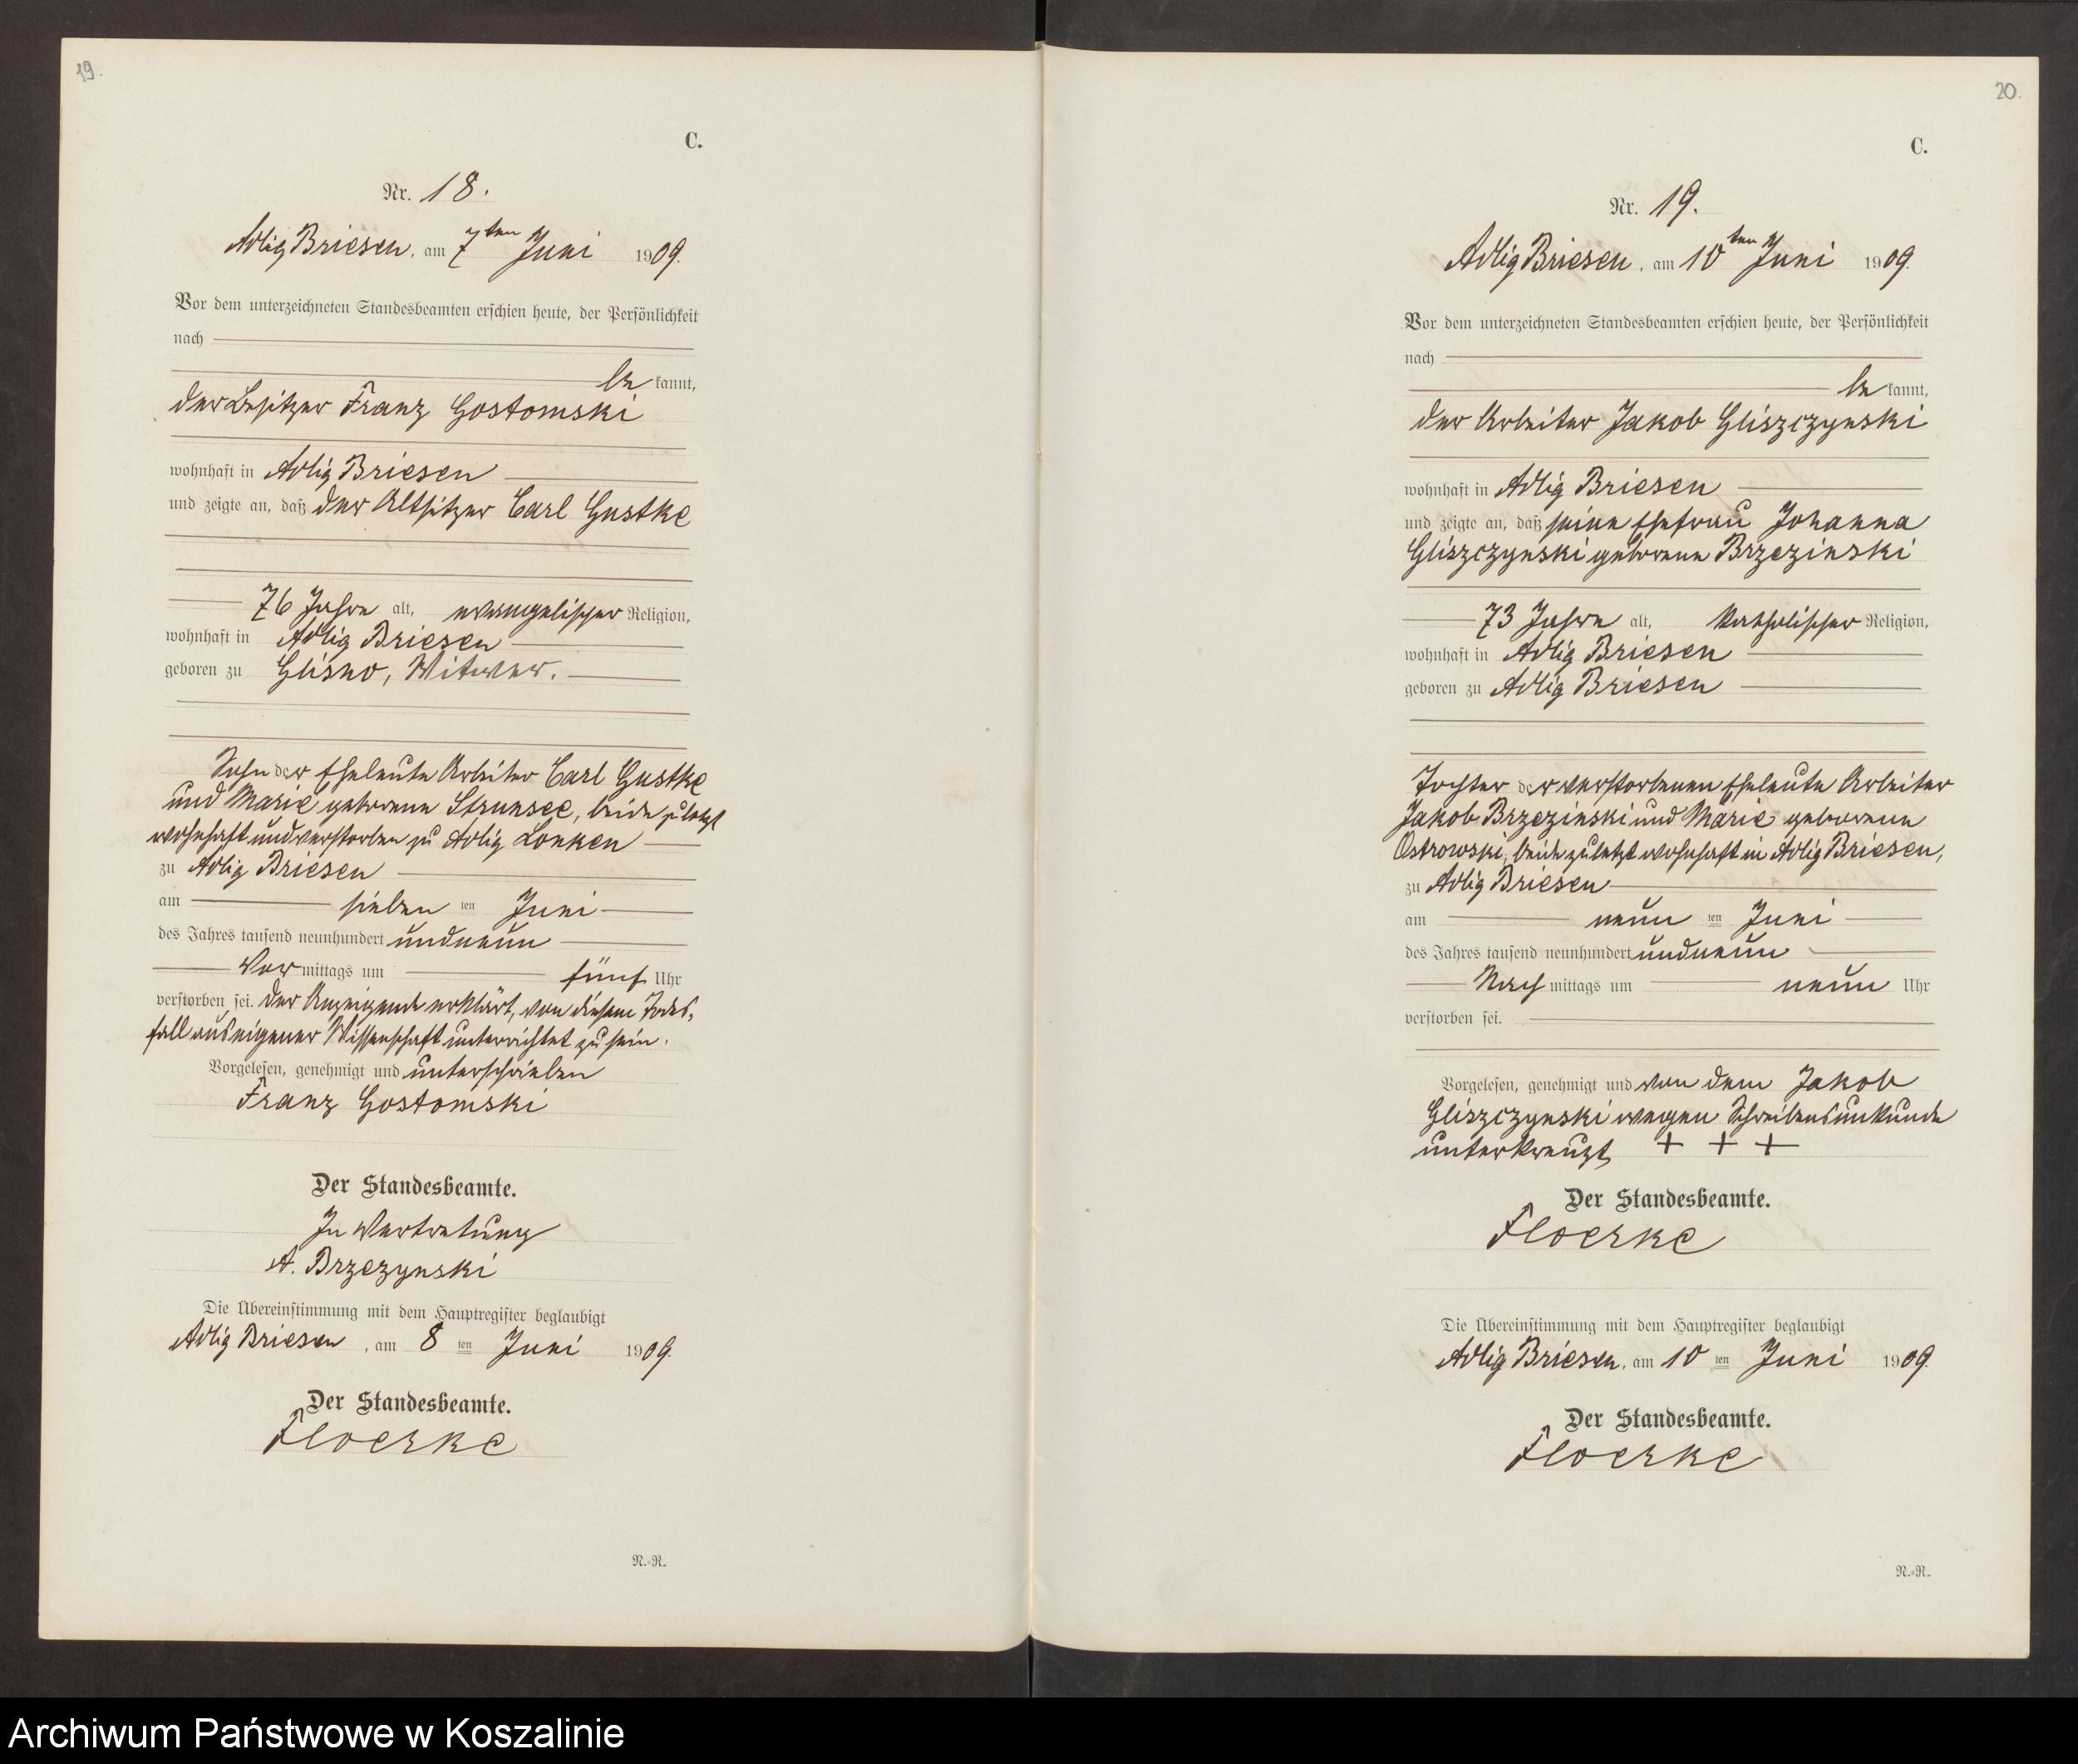 19.
C.
Nr. 18.
Adlig Briesen, am 7ten Juni 1909.
Vor dem unterzeichneten Standesbeamten erschien heute, der Persönlichkeit
nach
bekannt,
der Besitzer Franz Gostomski
wohnhaft in Adlig Briesen
und zeigte an, daß der Altsitzer Carl Gustke
76 Jahre alt, evangelischer Religion,
wohnhaft in Adlig Briesen
geboren zu Glisno, Witwer.
Sohn der Eheleute Arbeiter Carl Gustke
und Marie geborene Strunsee, beide zuletzt
wohnhaft und verstorben zu Adlig Lonken
zu Adlig Briesen
am sieben ten Juni
des Jahres tausend neunhundert und neun
Vormittags um fünf Uhr
verstorben sei. Der Anzeigende erklärt, von diesem Todes-
fall aus eigener Wissenschaft unterrichtet zu sein.
Vorgelesen, genehmigt und unterschrieben
Franz Gostomski
Der Standesbeamte.
In Vertretung
A. Brzezynski
Die Übereinstimmung mit dem Hauptregister beglaubigt
Adlig Briesen, am 8 ten Juni 1909.
Der Standesbeamte.
Floerke
N.-R.
20.
C.
Nr. 19.
Adlig Briesen, am 10ten Juni 1909.
Vor dem unterzeichneten Standesbeamten erschien heute, der Persönlichkeit
nach
bekannt,
der Arbeiter Jakob Gliszczynski
wohnhaft in Adlig Briesen
und zeigte an, daß seine Ehefrau Johanna
Gliszczynski geborene Brzezinski
73 Jahre alt, katholischer Religion,
wohnhaft in Adlig Briesen
geboren zu Adlig Briesen
Tochter der verstorbenen Eheleute Arbeiter
Jakob Brzezinski und Marie geborene
Ostrowski, beide zuletzt wohnhaft in Adlig Briesen,
zu Adlig Briesen
am neun ten Juni
des Jahres tausend neunhundert und neun
Nachmittags um neun Uhr
verstorben sei.
Vorgelesen, genehmigt und von dem Jakob
Gliszczynski wegen Schreibensunkunde
unterkreuzt + + +
Der Standesbeamte.
Floerke
Die Übereinstimmung mit dem Hauptregister beglaubigt
Adlig Briesen, am 10 ten Juni 1909.
Der Standesbeamte.
Floerke
N.-R.
Archiwum Państwowe w Koszalinie